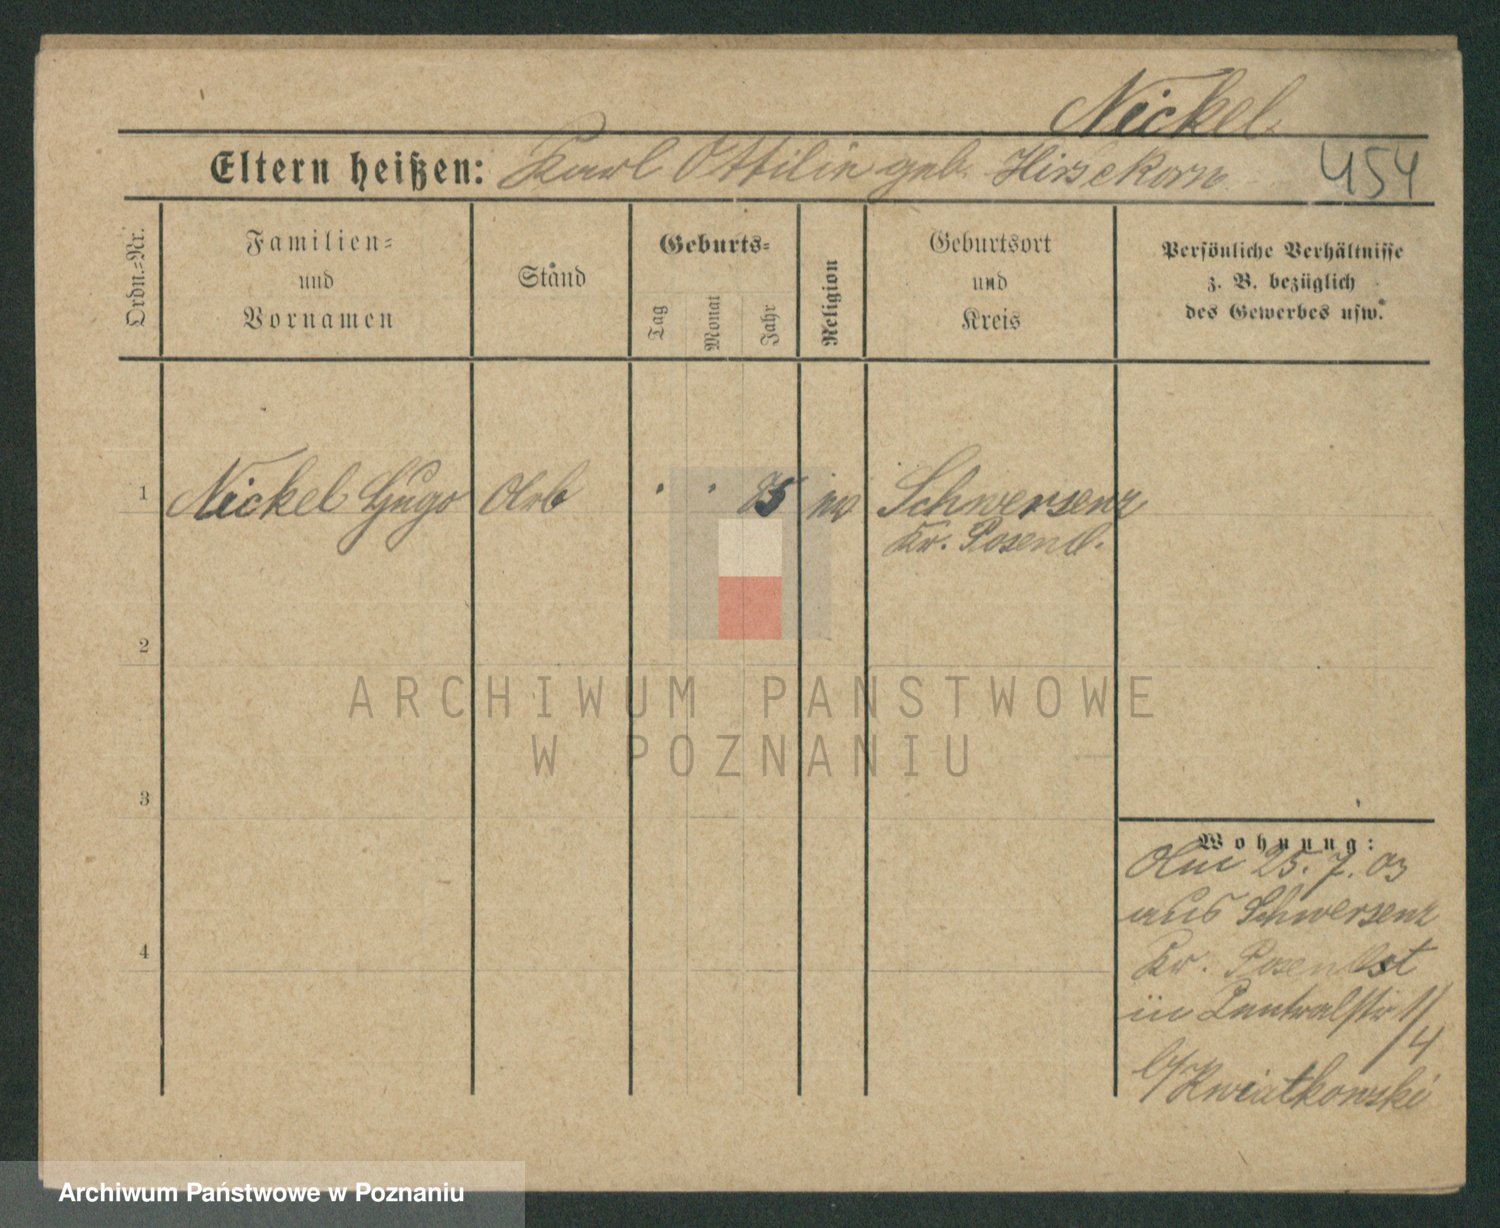 Nickel
Eltern heißen: Karl Ottilie geb. Hirsekorn
454
Ordn.-Nr.
Familien-
und
Vornamen
Stand
Geburts-
Tag
Monat
Jahr
Religion
Geburtsort
und
Kreis
Persönliche Verhältnisse
z. B. bezüglich
des Gewerbes usw.
1 Nickel Hugo Arb 85 ev Schwersenz
Kr. Posen O.
2
3
4
Wohnung:
Am 25.7.03
aus Schwersenz
Kr. Posen Ost
in Zentralstr
4
b/Kwiatkowski
ARCHIWUM PAŃSTWOWE
W POZNANIU
Archiwum Państwowe w Poznaniu